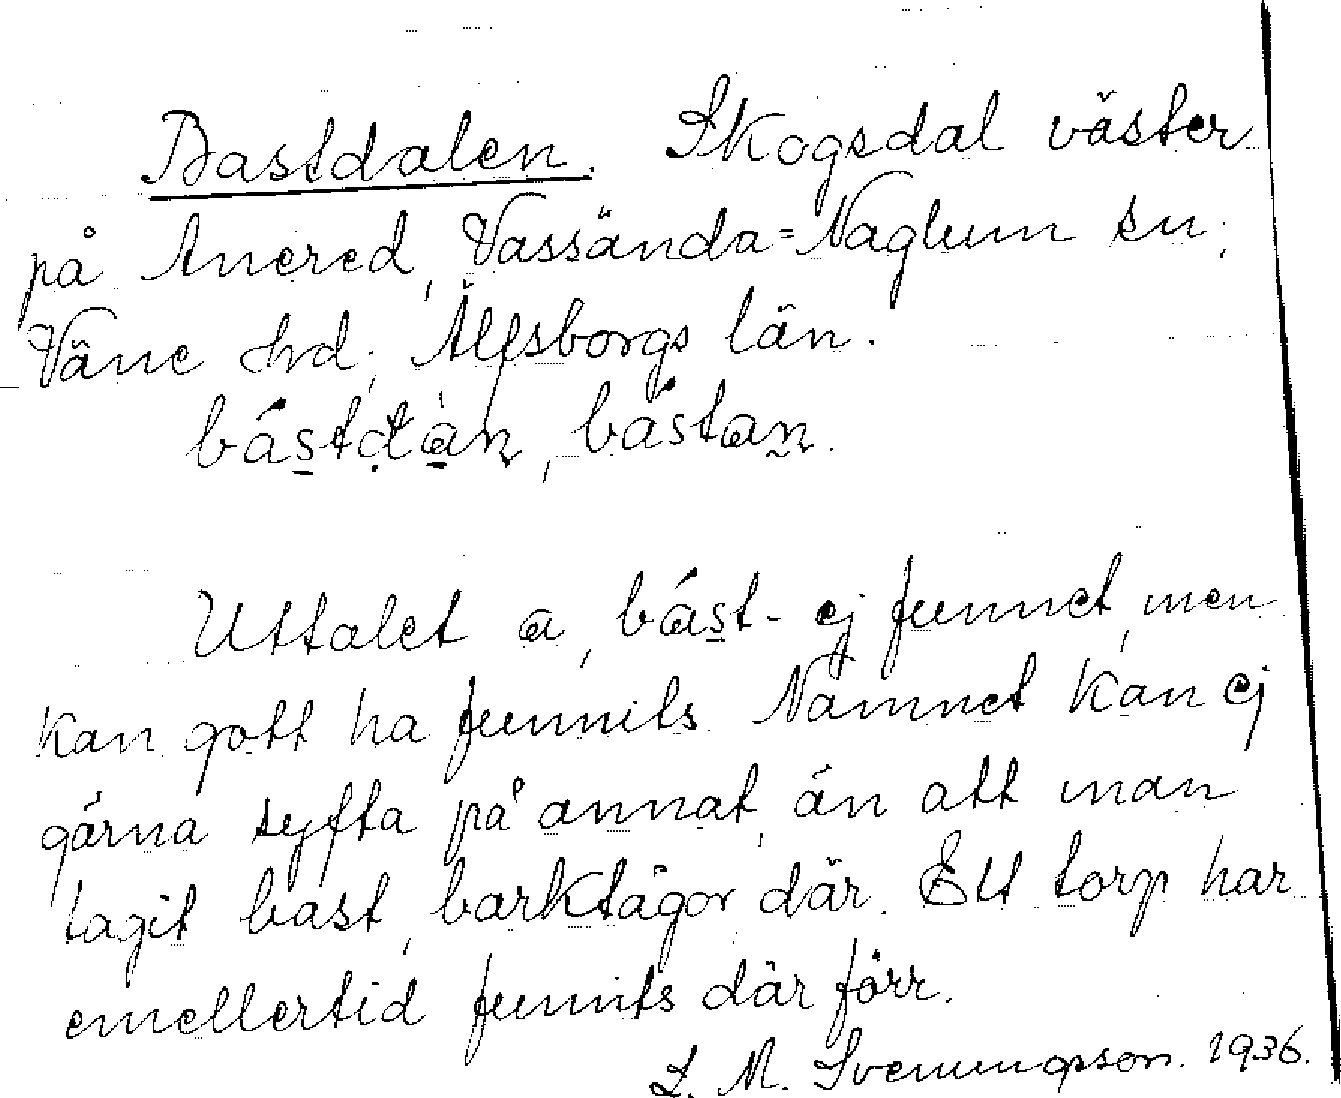 Bastdalen. Skogsdal väster
på Anered, Vassända=Naglum sn,
Väne hd, Älfsborgs län.
bástdàn, bástan.
Uttalet a, bást- ej funnet, men
kan gott ha funnits. Namnet kan ej
gärna syfta på annat, än att man
tagit bast, barktågor där. Ett torp har
emellertid funnits där förr.
L. M. Svenungsson. 1936.